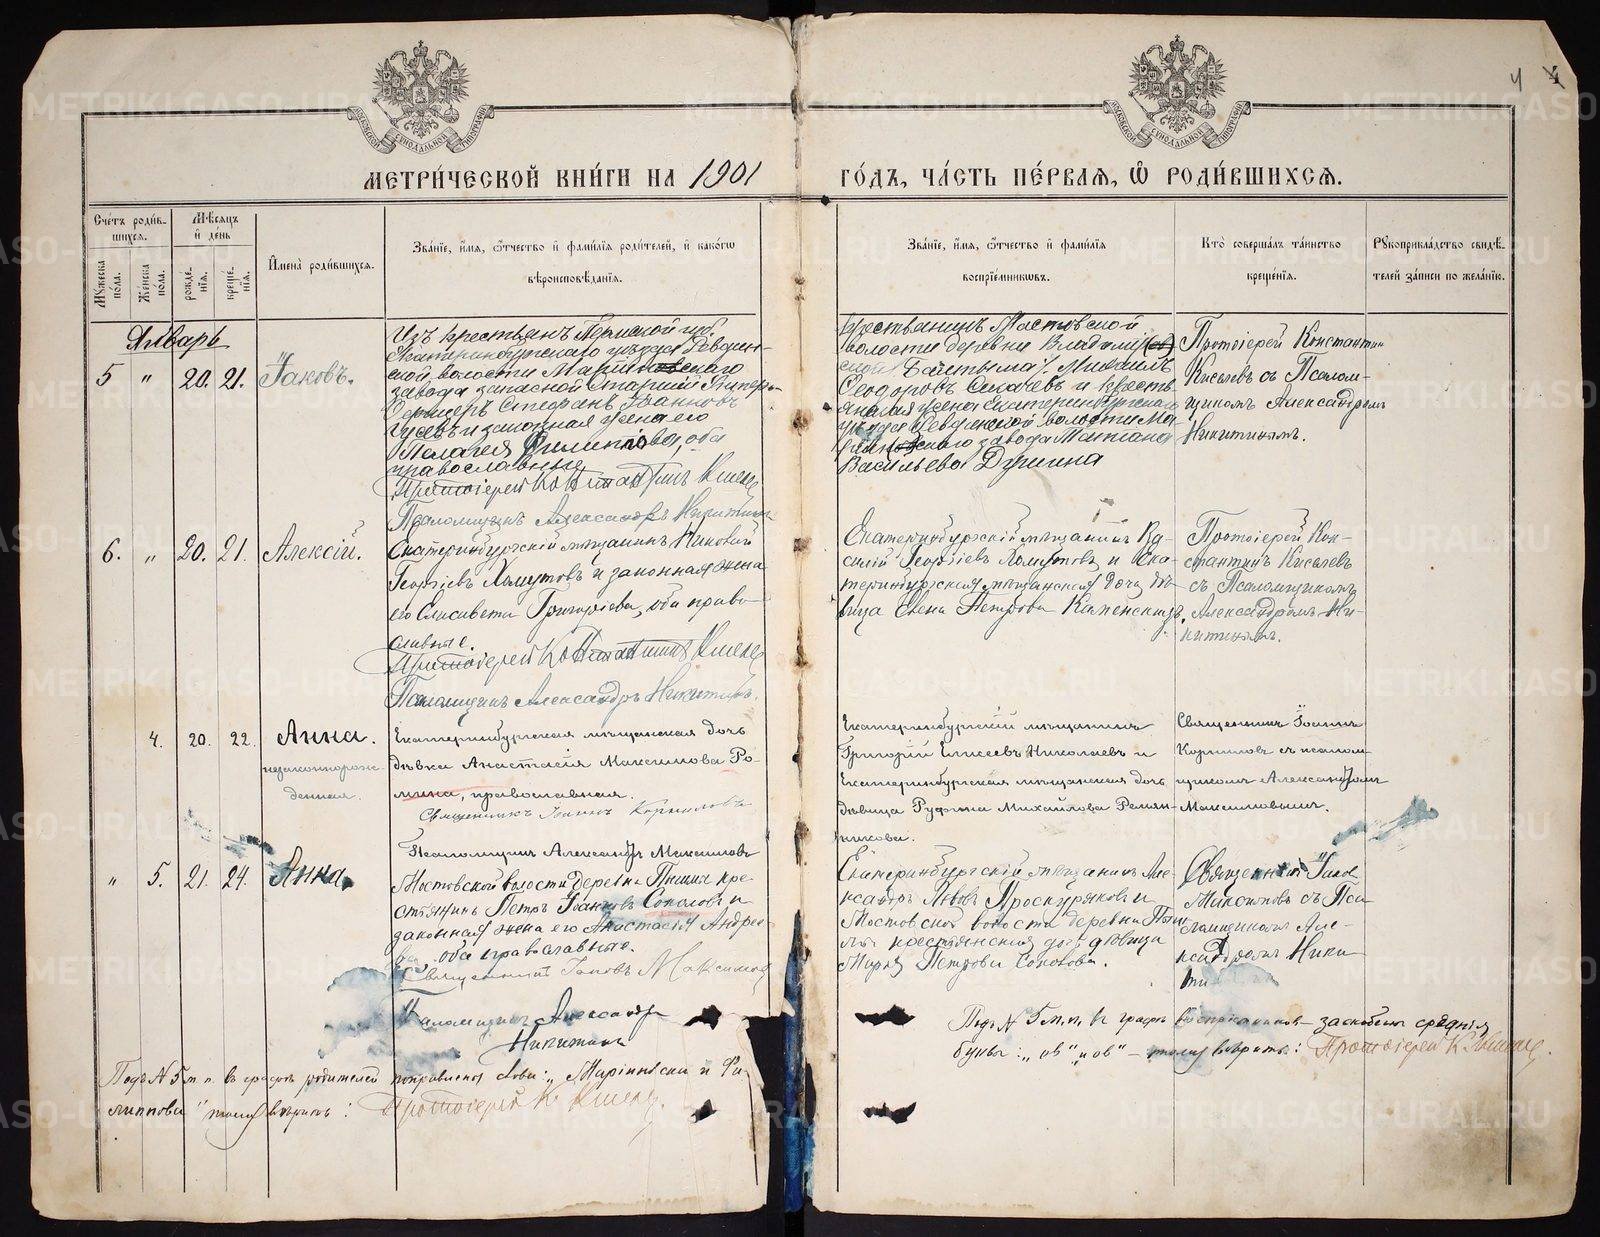 МЕТРИ́ЧЕСКОЙ КНИ́ГИ НА 1901 ГО́ДЪ, ЧА́СТЬ ПЕ́РВАЯ, Ѽ РОДИ́ВШИХСЯ.
Сче́тъ роди́в-
шихся.
Му́жеска
по́ла.
Же́нска
по́ла.
Мѣ́сяцъ
и҆ де́нь
рожде́-
нїя.
креще́-
нїя.
И҆мена̀ роди́вшихся.
Зва́нїе, и҆́мя, ѻ҆́тчество и҆ фами́лїя роди́телей, и҆ како́гѡ
вѣроисповѣ́данїя.
Зва́нїе, и҆́мя, ѻ҆́тчество и҆ фами́лїя
воспрїе́мниковъ.
Кто̀ соверша́лъ та́инство
креще́нїя.
Рꙋкоприкла́дство свидѣ́-
телей за́писи по жела́нїю.
Январь
5 " 20. 21. Іаковъ.
Изъ крестьянъ Пермской губ.
Екатеринбургскаго уѣзда Ревдин-
ской волости Маріинскаго
завода запасной старшій Унтеръ-
Офицеръ Стефанъ Іоанновъ
Гусевъ и законная жена его
Пелагея Филиппова, оба
православные
Протоіерей Константинъ
Псаломщикъ Александръ Никитинъ
Крестьянинъ Мостовской
волости деревни
Михаилъ
Ѳеодоровъ и кресть-
янская жена Екатеринбургскаго
уѣзда Ревдинской волости Ма-
завода Татіана
Васильева
Протоіерей Константинъ
съ Псалом-
щикомъ Александромъ
Никитинымъ.
6. " 20. 21. Алексій.
Екатеринбургскій мѣщанинъ
Георгіевъ Хомутовъ и законная жена
его Елисавета Григоріева, оба право-
славные.
Протоіерей Константинъ
Псаломщикъ Александръ Никитинъ.
Екатеринбургскій мѣщанинъ Ва-
силій Георгіевъ Хомутовъ и Ека-
теринбургская мѣщанская дочь дѣ-
вица Елена Петрова
Протоіерей Кон-
стантинъ
съ Псаломщикомъ
Александромъ Ни-
китинымъ.
4. 20. 22. Анна.
незаконнорож-
денная.
Екатеринбургская мѣщанская дочь
дѣвка Анастасія Максимова Ро-
мина, православная.
Священникъ Іоаннъ Корниловъ
Псаломщикъ Александръ Максимовъ
Екатеринбургскій мѣщанинъ
Григорій Елисеевъ Николаевъ и
Екатеринбургская мѣщанская дочь
дѣвица Руфина Михайлова Ремян-
никова.
Священникъ Іоаннъ
Корниловъ съ псалом-
щикомъ Александромъ
Максимовымъ.
" 5. 21. 24. Анна.
Мостовской волости деревни Пышмы кре-
стьянинъ Петръ Іоанновъ Соколовъ и
законная жена его Анастасія Андрее-
ва, оба православные.
Священникъ Іаковъ Максимовъ
Псаломщикъ Александръ
Никитинъ
Екатеринбургскій мѣщанинъ Але-
ксандръ Львовъ Проскуряковъ и
Мостовской волости деревни Пыш-
мы крестьянская дочь дѣвица
Марія Петрова Соколова.
Священникъ Іаковъ
съ Пса-
ломщикомъ Але-
ксандромъ Ники-
Подъ № 5 м. п. въ графѣ родителей поправлены слова: „Маріинскаго и Фи-
липпова" тому вѣрить: Протоіерей К.
Подъ № 5 м. п. въ графѣ воспріемниковъ — заскоблены среднія
буквы: „ов" „и ов" — тому вѣрить: Протоіерей К.
4
METRIKI.GASO-URAL.RU